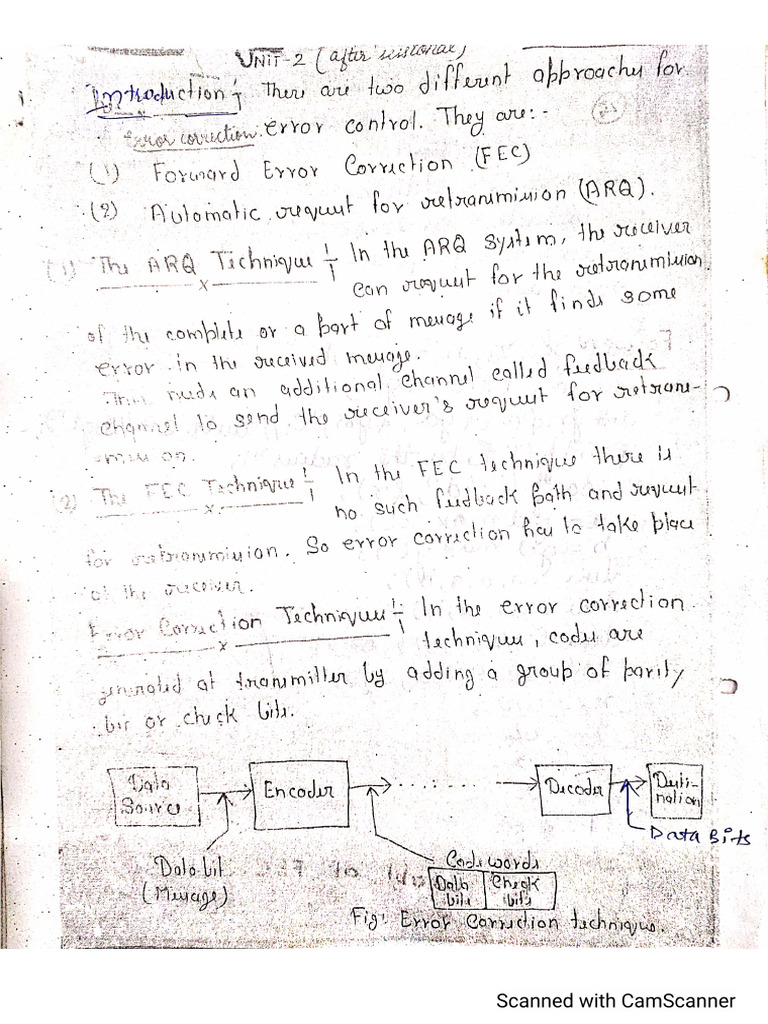 UNIT-2 (after sessional)
Introduction :- There are two different approaches for
Error correction. error control. They are:-
(1) Forward Error Correction (FEC)
(2) Automatic request for retransmission (ARQ).
(1) The ARQ Technique :- In the ARQ system, the receiver
can request for the retransmission
of the complete or a part of message if it finds some
error in the received message.
This needs an additional channel called feedback
channel to send the receiver's request for retrans-
mission.
(2) The FEC Technique :- In the FEC technique there is
no such feedback path and request
for retransmission. So error correction has to take place
at the receiver.
Error Correction Techniques :- In the error correction
techniques, codes are
generated at transmitter by adding a group of parity
bit or check bits.
Data Source
Encoder
Decoder
Desti-
nation
Data Bits
Data bit
(Message)
Codewords
Data bits
Check bits
Fig: Error Correction technique.
Scanned with CamScanner